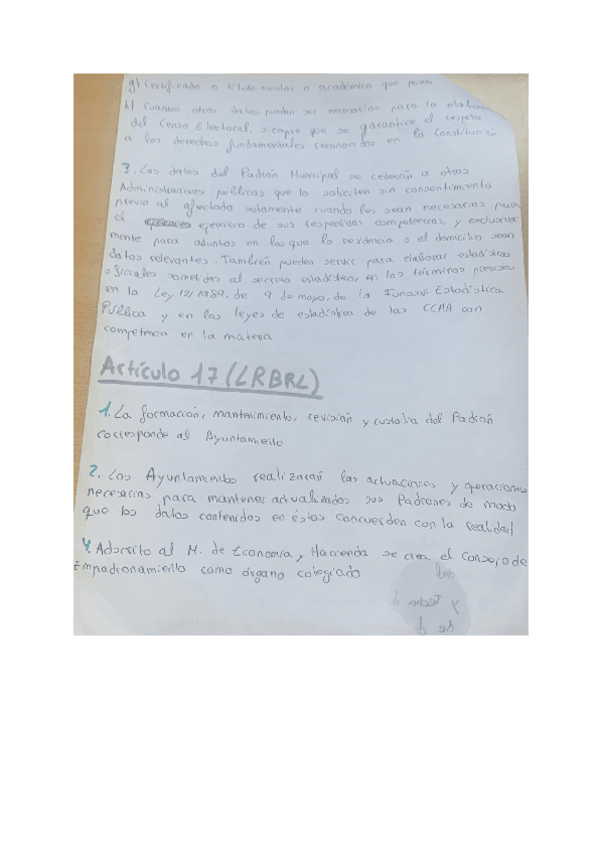 g) Certificado o título escolar o académico que posea
h) Cuantos otros datos puedan ser necesarios para la elabora
del Censo Electoral, siempre que se garantice el respeto
a los derechos fundamentales reconocidos en la Constitución
3. Los datos del Padrón Municipal se cederán a otras
Administraciones públicas que lo soliciten sin consentimiento
previo al afectado solamente cuando les sean necesarios para
el ejercicio de sus respectivas competencias, y exclusiva
mente para asuntos en los que la residencia o el domicilio sean
datos relevantes. También pueden servir para elaborar estadísticas
oficiales sometidas al secreto estadístico, en los términos previstos
en la Ley 12/1989, de 9 de mayo, de la Función Estadística
Pública y en las leyes de estadística de las CCAA con
competencia en la materia
Artículo 17 (LRBRL)
1. La formación, mantenimiento, revisión y custodia del Padrón
corresponde al Ayuntamiento
2. Los Ayuntamientos realizarán las actuaciones y operaciones
necesarias para mantener actualizados sus Padrones de modo
que los datos contenidos en éstos concuerden con la realidad
4. Adscrito al M. de Economía y Hacienda se crea el Consejo de
Empadronamiento como órgano colegiado